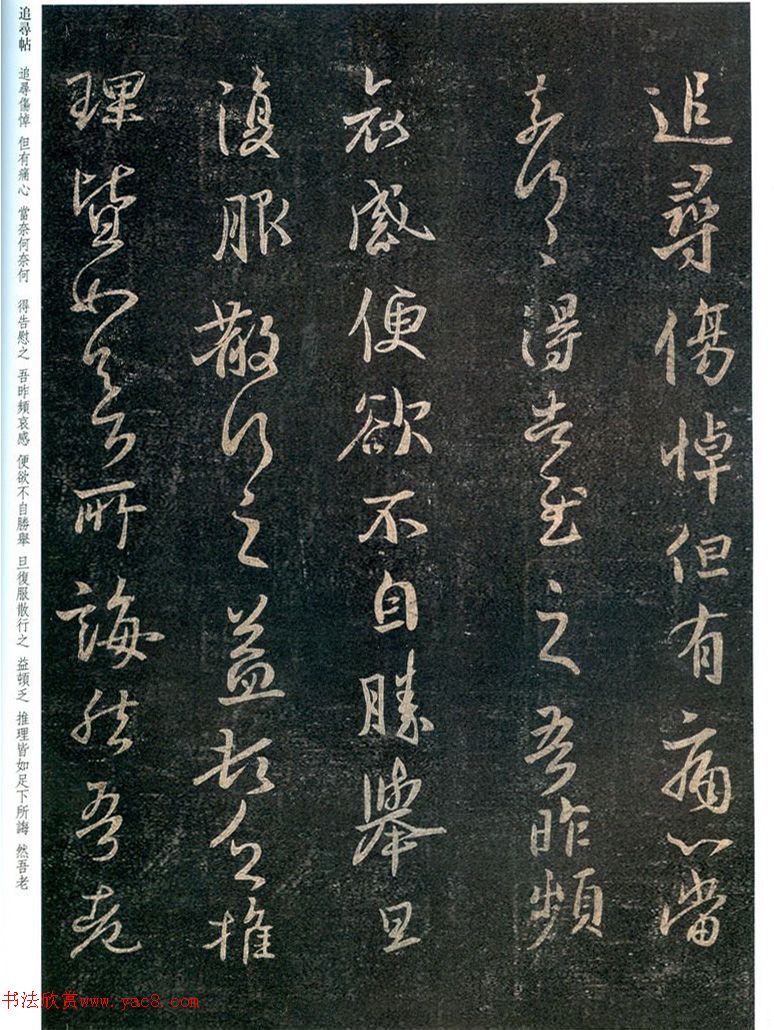 追尋傷悼但有痛心當
奈何〻得告慰之吾昨頻
哀感便欲不自勝舉旦
復服散行之益頓乏推
理皆如足下所誨然吾老
追尋帖 追尋傷悼 但有痛心 當奈何奈何 得告慰之 吾昨頻哀感 便欲不自勝舉 旦復服散行之 益頓乏 推理皆如足下所誨 然吾老
书法欣赏www.yac8.com